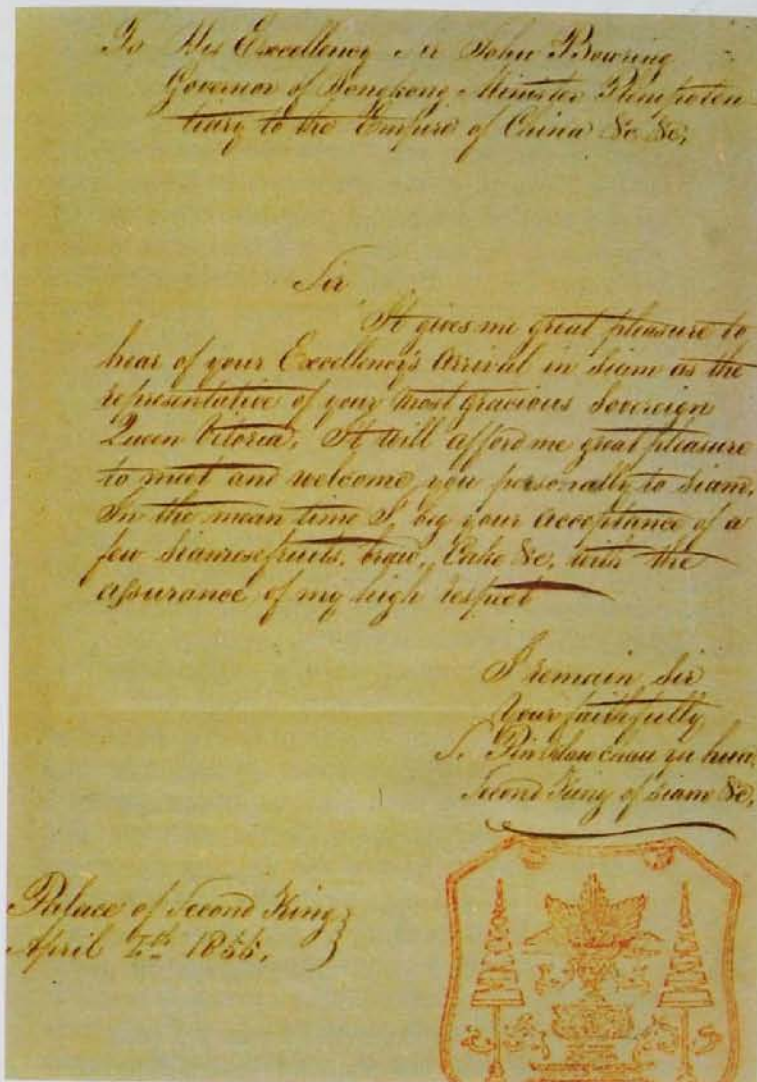 To His Excellency Sir John Bowring
Governor of Hongkong Minister Plenipoten-
tiary to the Empire of China &c &c,
Sir
It gives me great pleasure to
hear of your Excellency's Arrival in Siam as the
representative of your most gracious Sovereign
Queen Victoria. It will afford me great pleasure
to meet and welcome you personally to Siam.
In the mean time I, beg your acceptance of a
few Siamese fruits, Cake &c, with the
assurance of my high respect
I remain Sir
Your faithfully
S. Pin
Second King of Siam &c,
Palace of Second King
April 1855.